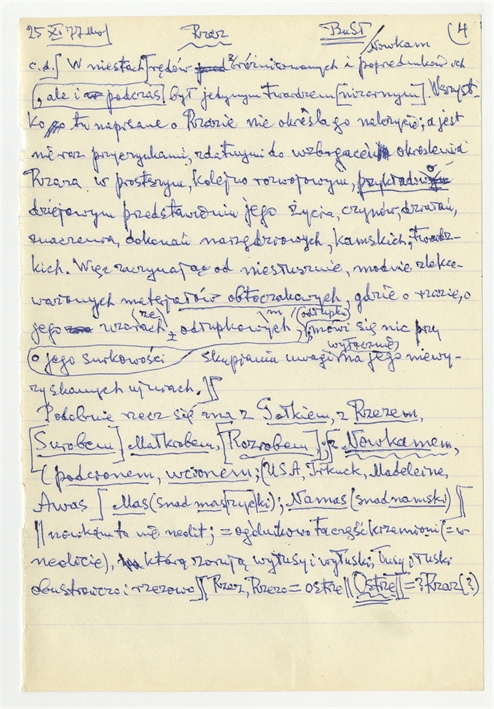 25 XI 77 Rzaz BuSt / Nowkam 4
c.d. W miastach rzędów zróżnicowanych i poprzedników ich
, ale i podczas był jedynym twardzem nizornym Wszyst-
ko tu napisane o Rzazie nie określa go należycie; a jest
nie raz przyczynkami, zdatnymi do wzbogacenia określenia
Rzaza w prostszym, kolejno rozwojowym,
dziejowym przedstawieniu jego życia, czynów, działań,
znaczenia, dokonań narzędziowych, kamskich, twardz-
kich. Więc zaczynając od niesłusznie, modnie zlekce-
ważonych materjałów obłoczakowych, gdzie o rzazie, o
jego (że) wzorach ± odłupkowych, (odłupki) mówi się nic przy
o jego surkowości skupianiu uwagi wyłącznie na jego niewy-
zyskanych ujurach.]]
Podobnie rzecz się ma z Gałkiem, z Rzezem,
[Surobem] Małkrobem, [Rozrobem]; z Nowkamem,
(podrzonem, wrionem; (USA, Irkuck, Madeleine,
Awas [Mas (snad mastrzejki); Namas (snad namski)]]
|| nowikamta nie neolit; = ogólnikowo ta część krzemioni (= w
neolicie), którą zorują wyłusy i wyłuski, łusy i łuski
obustronczo i rzezowo]] Rzaz, Rzezo = ostrze || Ostrze || = ? Rzaz (?)